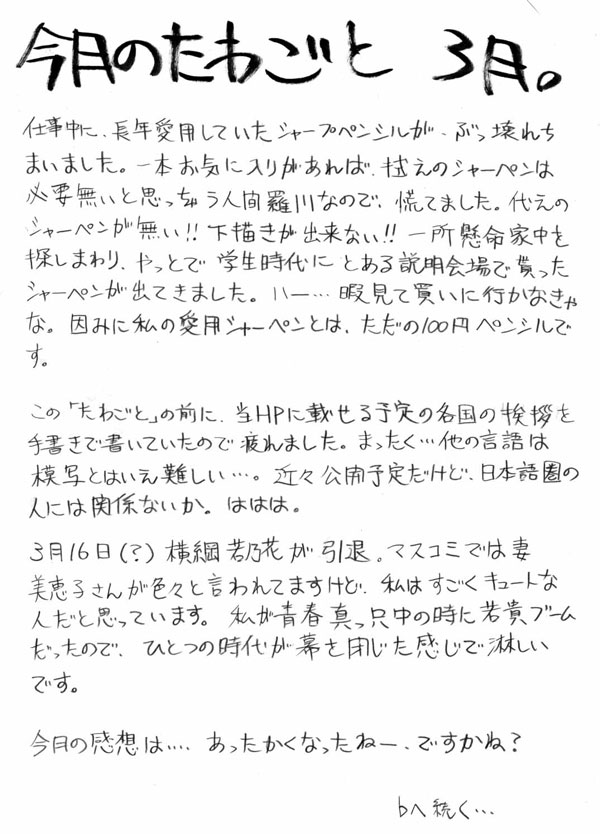 今月のたわごと 3月。
仕事中に、長年愛用していたシャープペンシルが、ぶっ壊れち
まいました。一本お気に入りがあれば、拭えのシャーペンは
必要無いと思っちゃう人間羅川なので、慌てました。代えの
シャーペンが無い!! 下描きが出来ない!! 一所懸命家中を
探しまわり、やっとで学生時代にとある説明会場で貰った
シャーペンが出てきました。ハー…暇見て買いに行かなきゃ
な。因みに私の愛用シャーペンとは、ただの100円ペンシルで
す。
この「たわごと」の前に、当HPに載せる予定の各国の挨拶を
手書きで書いていたので疲れました。まったく…他の言語は
模写とはいえ難しい…。近々公開予定だけど、日本語圏の
人には関係ないか。ははは。
3月16日(?)横綱若乃花が引退。マスコミでは妻
美恵子さんが色々と言われてますけど、私はすごくキュートな
人だと思っています。私が青春真っ只中の時に若貴ブーム
だったので、ひとつの時代が幕を閉じた感じで淋しい
です。
今月の感想は…. あったかくなったねー、ですかね?
bへ続く…